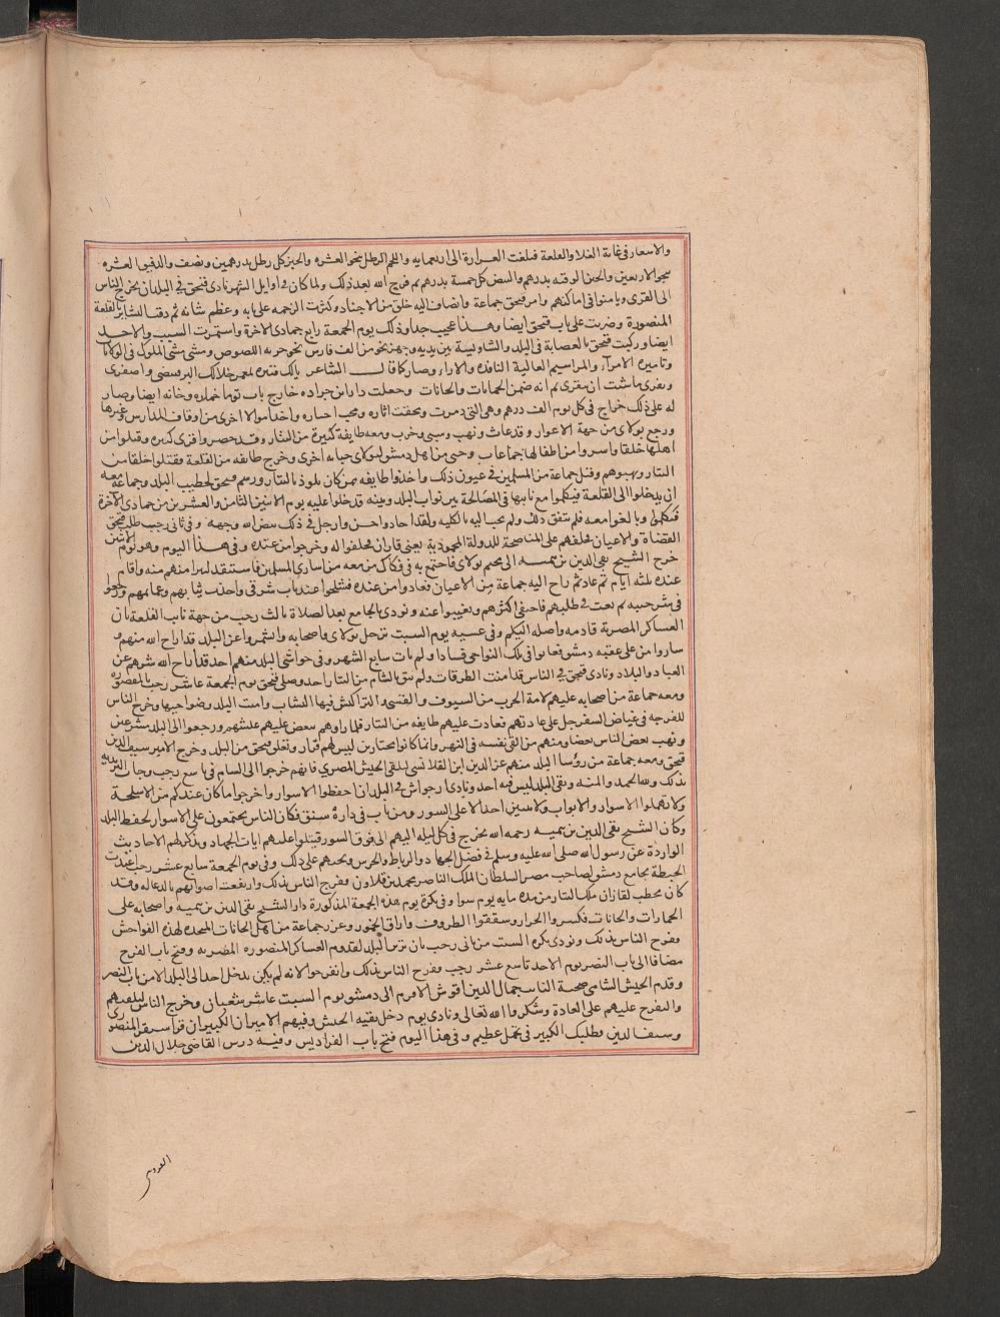 والاسعار في غاية الغلا والقلعة فبلغت الغرارة الى اربعمايه واللحم الرطل بنحو العشره والخبز كل رطل بدرهمين ونصف والدقيق العشره
بنحو الاربعين والجبن الوقيه بدرهم والبيض كل خمسة بدرهم ثم فرج الله بعد ذلك ولما كان في اوايل الشهر نادى قبجق في البلدان يخرج الناس
الى القرى ويامنوا في اماكنهم وامر قبجق جماعة وانضاف اليه خلق من الاجناد وكثرت الزحمه على بابه وعظم شانه ثم دقت البشاير بالقلعة
المنصورة وضربت على باب قبجق ايضا وهذا عجيب جدا وذلك يوم الجمعة رابع جمادى الاخرة واستمرت السبت والاحد
ايضا وركب قبجق بالعصابة في البلد والشاويشية بين يديه وجهز نحو من الف فارس نحو خربه اللصوص ومشى مشى الملوك في الولاة
وتامير الامرآ والمراسيم العالية النافذه والاراء وصار كما قال الشاعر يا لك قنبره بمعمر خلا لك البر فبيضي واصفري
ونقري ما شئت ان تنقري ثم انه ضمن الخمارات والحانات وجعلت دار ابن جراده خارج باب توما خماره وخانه ايضا وصار
له على ذلك خراج في كل يوم الف درهم وهي التي دمرت ومحقت اثاره واخذ اموالا اخرى من اوقاف المدارس وغيرها
ورجع بولاى من جهة الاغوار وقد عاث ونهب وسبى وخرب ومعه طايفة كثيرة من التتار وقد خربوا قرى كثيره وقتلوا من
اهلها خلقا واسروا من اطفالها جماعات وجبى من اهل دمشق لبولاى جبايه اخرى وخرج طايفه من القلعة فقتلوا خلقا من
التتار ونهبوهم وقتل جماعة من المسلمين في غيون ذلك واخذوا طايفه ممن كان يلوذ بالتتار ورسم قبجق لخطيب البلد وجماعة معه
ان يدخلوا الى القلعة فيكلموا مع نايبها في المصالحة بين نواب البلد وبينه فدخلوا عليه يوم الاثنين الثامن والعشرين من جمادى الاخرة
فتكلموا وبالغوا معه فلم يتفق ذلك ولم يجب اليه بالكليه ولقد اجاد واحسن وارجل في ذلك بيض الله وجهه وفي ثانى رجب طلب قبجق
القضاة والاعيان فحلفهم على المناصحة للدولة المحمودية يعني قازان فحلفوا له وخرجوا من عنده وفي هذا اليوم وهو يوم الاثنين
خرج الشيخ تقى الدين بن تيميه الى مخيم بولاى فاجتمع به في فكاك من معه من اسارى المسلمين فاستنقذ كثيرا منهم منه واقام
عنده ثلثه ايام ثم عاد ثم راح اليه جماعة من الاعيان فعادوا من عنده فشلحوا عند باب شرقى واخذت ثيابهم وعمايمهم ورجعوا
في شر حيبه ثم بعث في طلبهم فاختفى اكثرهم وتغيبوا عنه ونودى بالجامع بعد الصلاة ثالث رجب من جهة نايب القلعة بان
العساكر المصرية قادمه واصله اليكم وفي عشيه يوم السبت ترحل بولاى واصحابه وانشمروا عن البلد قد اراح الله منهم و
ساروا من على عقبه دمشق فعاثوا في تلك النواحى فسادا ولم يات سابع الشهر وفي حواشى البلد منهم احد قد اراح الله شرهم عن
العباد والبلاد ونادى قبجق في الناس قد امنت الطرقات ولم يبق بالشام من التتار احد وصلى قبجق يوم الجمعة عاشر رجب بالمقصورة
ومعه جماعة من اصحابه عليهم لامة الحرب من السيوف والقسى والتراكش فيها النشاب وامنت البلد وضواحيها وخرج الناس
للفرجه في غياض السفرجل على عادتهم فعادت عليهم طايفه من التتار فلما راوهم بعض عليهم علشهم ورجعوا الى البلد مسرعين
ونهب بعض الناس بعضا ومنهم من القى نفسه في النهر وانما كانوا مجتازين ليس لهم قرار وتقلق قبجق من البلد وخرج الامير سيف الدين
قبجق ومعه جماعة من رؤسا البلد منهم عز الدين ابن القلانسى لتلقى الجيش المصري فانهم خرجوا الى الشام في تاسع رجب وجات البريديه
بذلك ولله الحمد والمنه وبقى البلد ليس فيه احد ونادى ارجواش في البلد ان احفظوا الاسوار واخرجوا ما كان عندكم من الاسلحة
ولا تهملوا الاسوار والابواب ولا يبيتن احدا الا على السور ومن بات في داره شنق فكان الناس يجتمعون على الاسوار لحفظ البلد
وكان الشيخ تقى الدين بن تيميه رحمه الله يخرج في كل ليله اليهم الى فوق السور فيتلوا عليهم ايات الجهاد ويذكر لهم الاحاديث
الواردة عن رسول الله صلى الله عليه وسلم في فضل الجهاد والرباط والحرس ويحثهم على ذلك وفي يوم الجمعة سابع عشر رجب اعيدت
الخطبة بجامع دمشق لصاحب مصر السلطان الملك الناصر محمد بن قلاون وفرح الناس بذلك وارتفعت اصواتهم بالدعا له وقد
كان يخطب لقازان ملك التتار من مده مايه يوم سوا وفي بكرة يوم هذه الجمعة المذكورة دار الشيخ تقى الدين بن تيميه واصحابه على
الخمارات والحانات فكسروا الجرار وشققوا الظروف واراق الخمور وعزر جماعة من اهل الحانات المتخده لهذه الفواحش
وفرح الناس بذلك ونودى بكره السبت من ثانى رجب بان تزين البلد لقدوم العساكر المنصوره المصريه وفتح باب الفرج
مضافا الى باب النصر يوم الاحد تاسع عشر رجب وفرح الناس بذلك وانفرجوا لانه لم يكن يدخل احد الى البلد الا من باب النصر
وقدم الجيش الشامى صحبة النايب جمال الدين اقوش الافرم الى دمشق يوم السبت عاشر شعبان وخرج الناس لتلقيهم
والتفرج عليهم على العادة وشكروا الله تعالى ونادى يوم دخل بقيه الجيش وفيهم الاميران الكبيران قراسنقر المنصورى
وسيف الدين قطلبك الكبير في تجمل عظيم وفي هذا اليوم فتح باب الفراديس وفيه درس القاضى جلال الدين
القزوينى